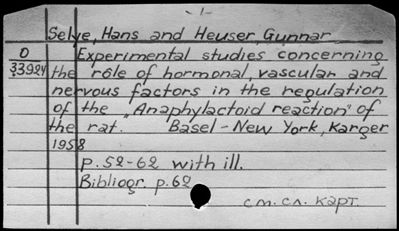 - 1 -
Selye, Hans and Heuser, Gunnar
O Experimental studies concerning
33924 the rôle of hormonal, vascular and
nervous factors in the regulation
of the „Anaphylactoid reaction" of
the rat. Basel-New York, Karger
1958
p. 52-62 with ill.
Bibliogr. p. 62
см. сл. карт.